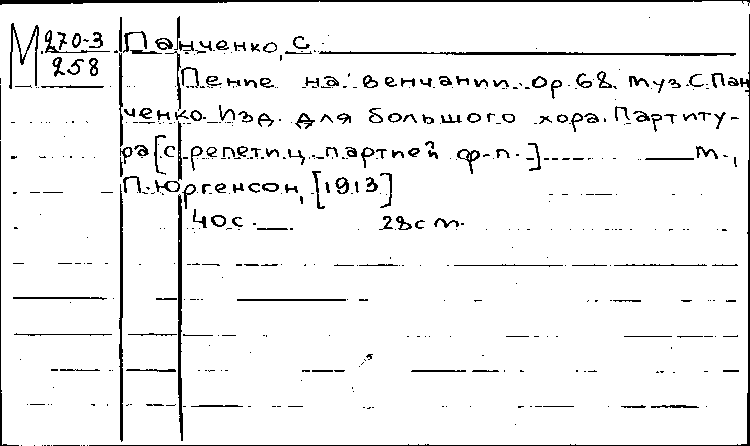 М 270-3 Панченко, С.
258
Пение на венчании. ор. 68. муз. С. Пан
ченко. Изд. для большого хора. Партиту-
ра [с репетиц. партией ф-п.] м.,
П. Юргенсон, [1913]
40 с. 28 см.